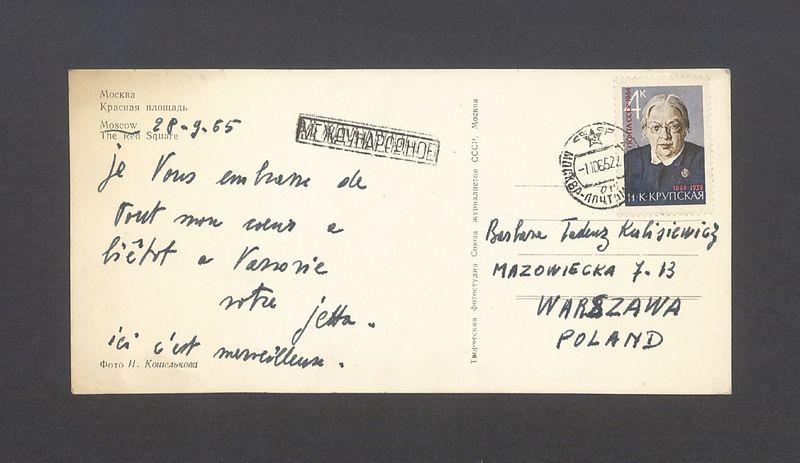 Москва
Красная площадь
Moscow 28-9.65
The Red Square
МЕЖДУНАРОДНОЕ
je vous embrasse de
tout mon coeur a
biêtot a Varsovie
votre jetta.
ici c'est merveilleuse.
Фото Н. Кошелькова
Творческая фотостудия Союза журналистов СССР. Москва
4к
ПОЧТА СССР
1869-1939
Н·К·КРУПСКАЯ
МОСКВА-ПОЧТАМТ
Barbara Tadeuz Kulisiewicz
MAZOWIECKA 7-13
WARSZAWA
POLAND